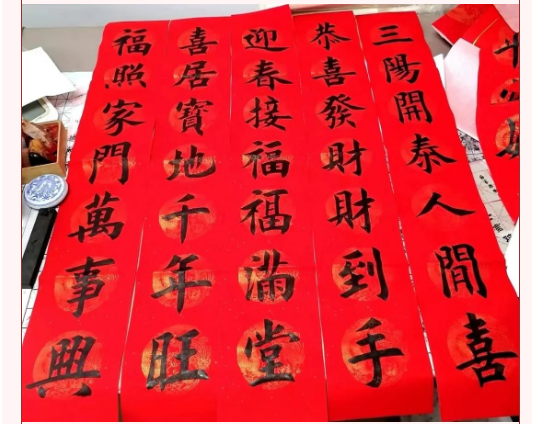 三陽開泰人閒喜
恭喜發財財到手
迎春接福福滿堂
喜居寶地千年旺
福照家門萬事興